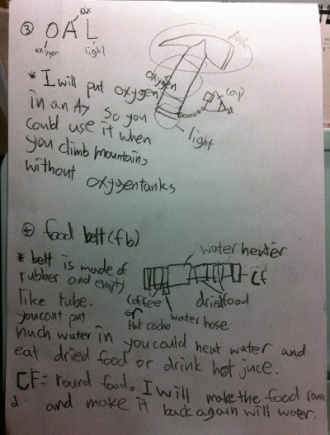 ③ OAL
ax
oxygen
light
Ax
oxygen
cap
light
* I will put oxygen
in an Ax so you
could use it when
you climb mountains
without oxygentanks
④ food belt(fb)
water heater
* belt is made of
rubber and empty
like tube.
CF
coffee
or
Hot cocho
water hose
dried food
you cont put
much water in you could heat water and
eat dried food or drink hot juce.
CF= round food. I will make the food roun
d and make it back again will water.